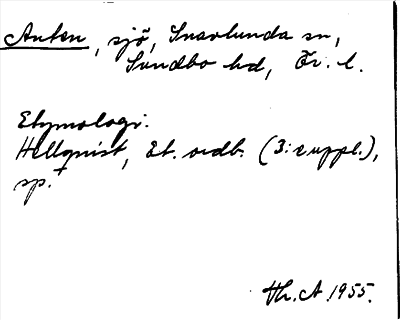 Anten, sjö, Snavlunda sn,
Sundbo hd, Ör. l.
Etymologi.
Hellquist, Et. ordb. (3: e uppl.),
sp.
Th. A. 1955.